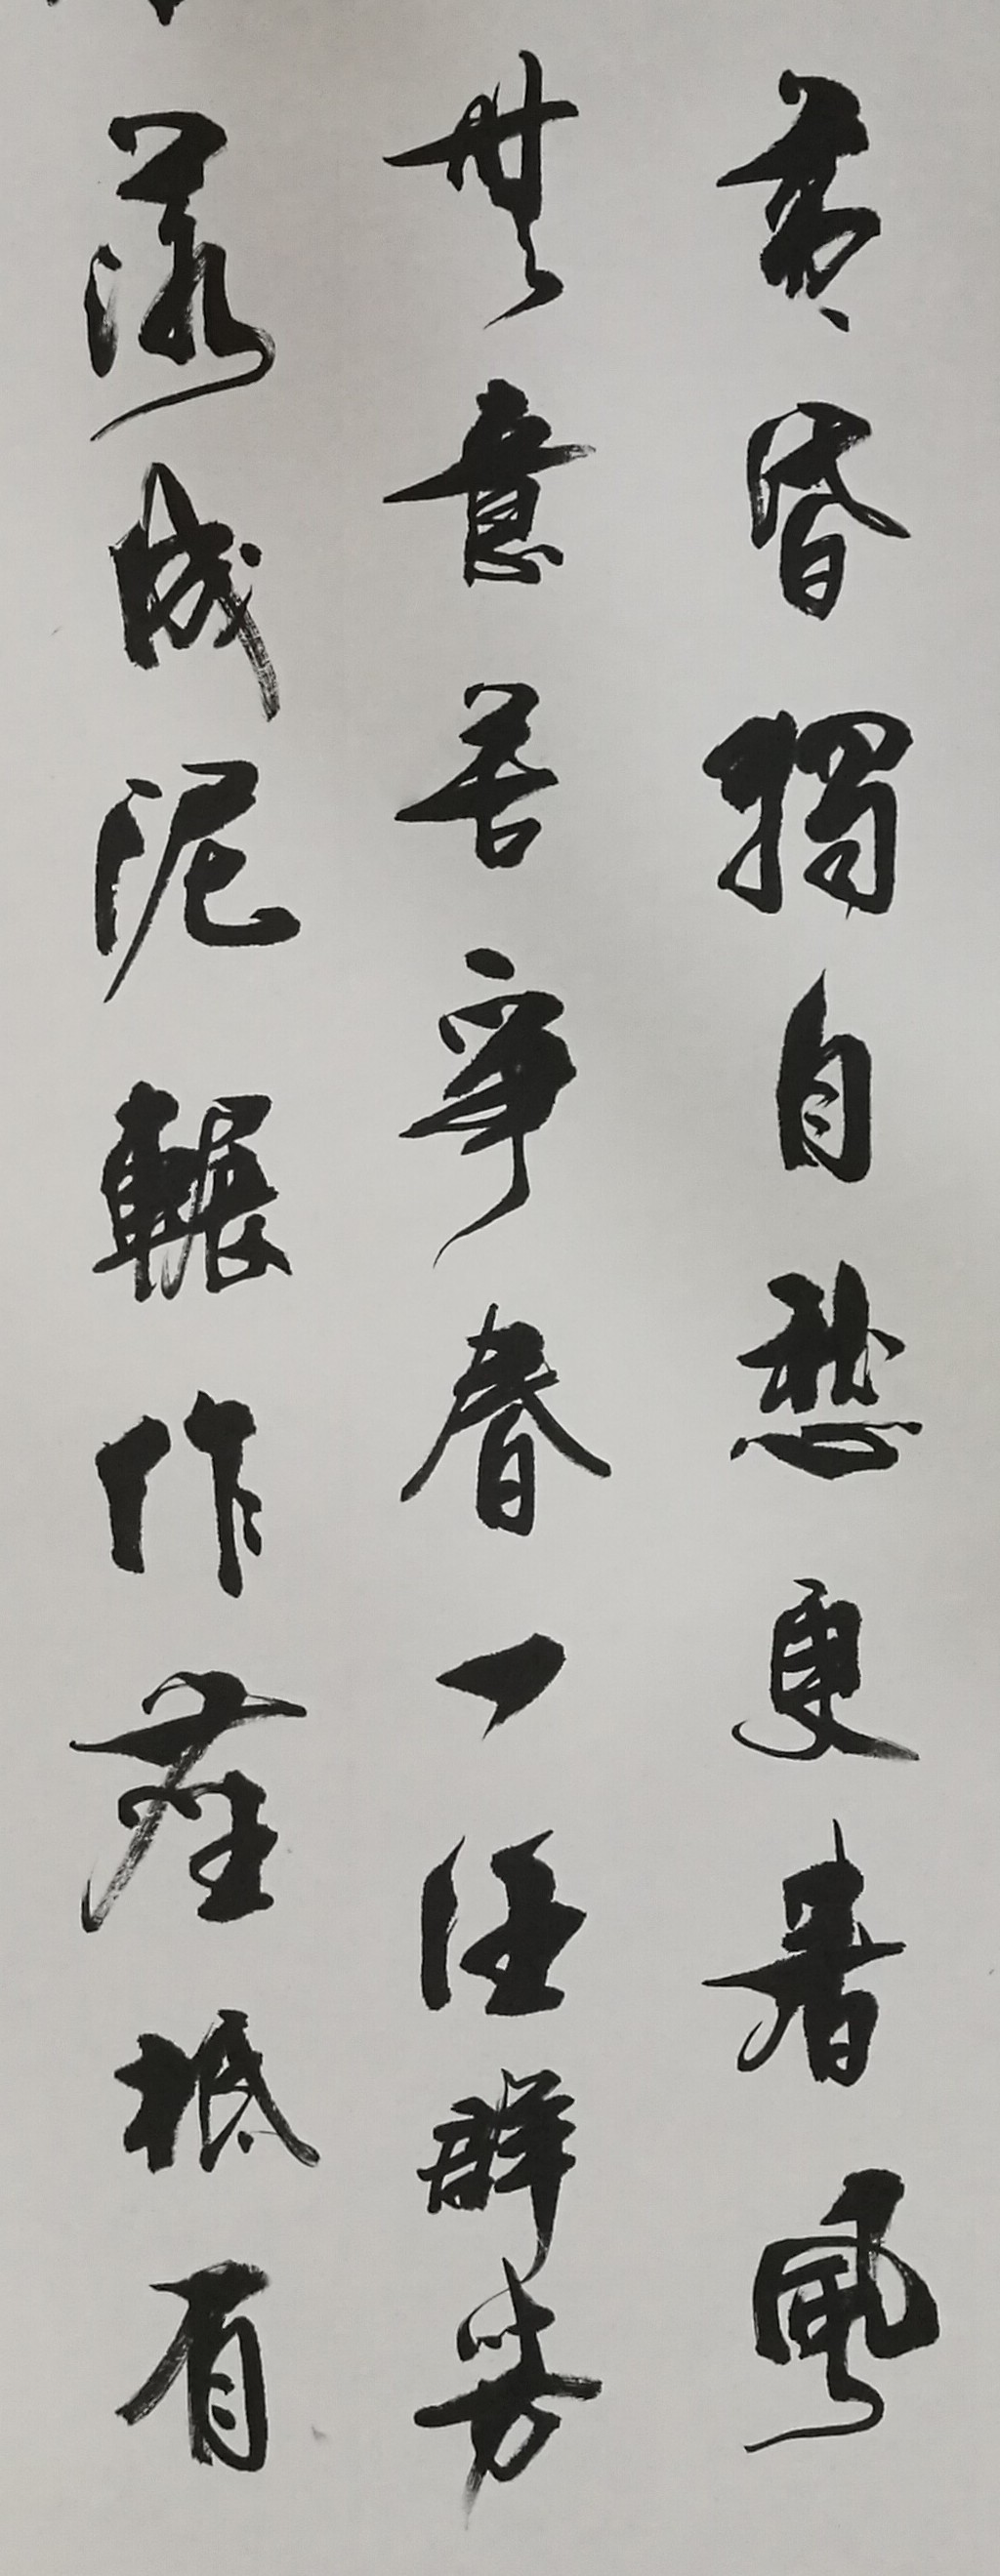 黄昏獨自愁更著風
無意苦爭春一任群芳
落成泥輾作塵祗有